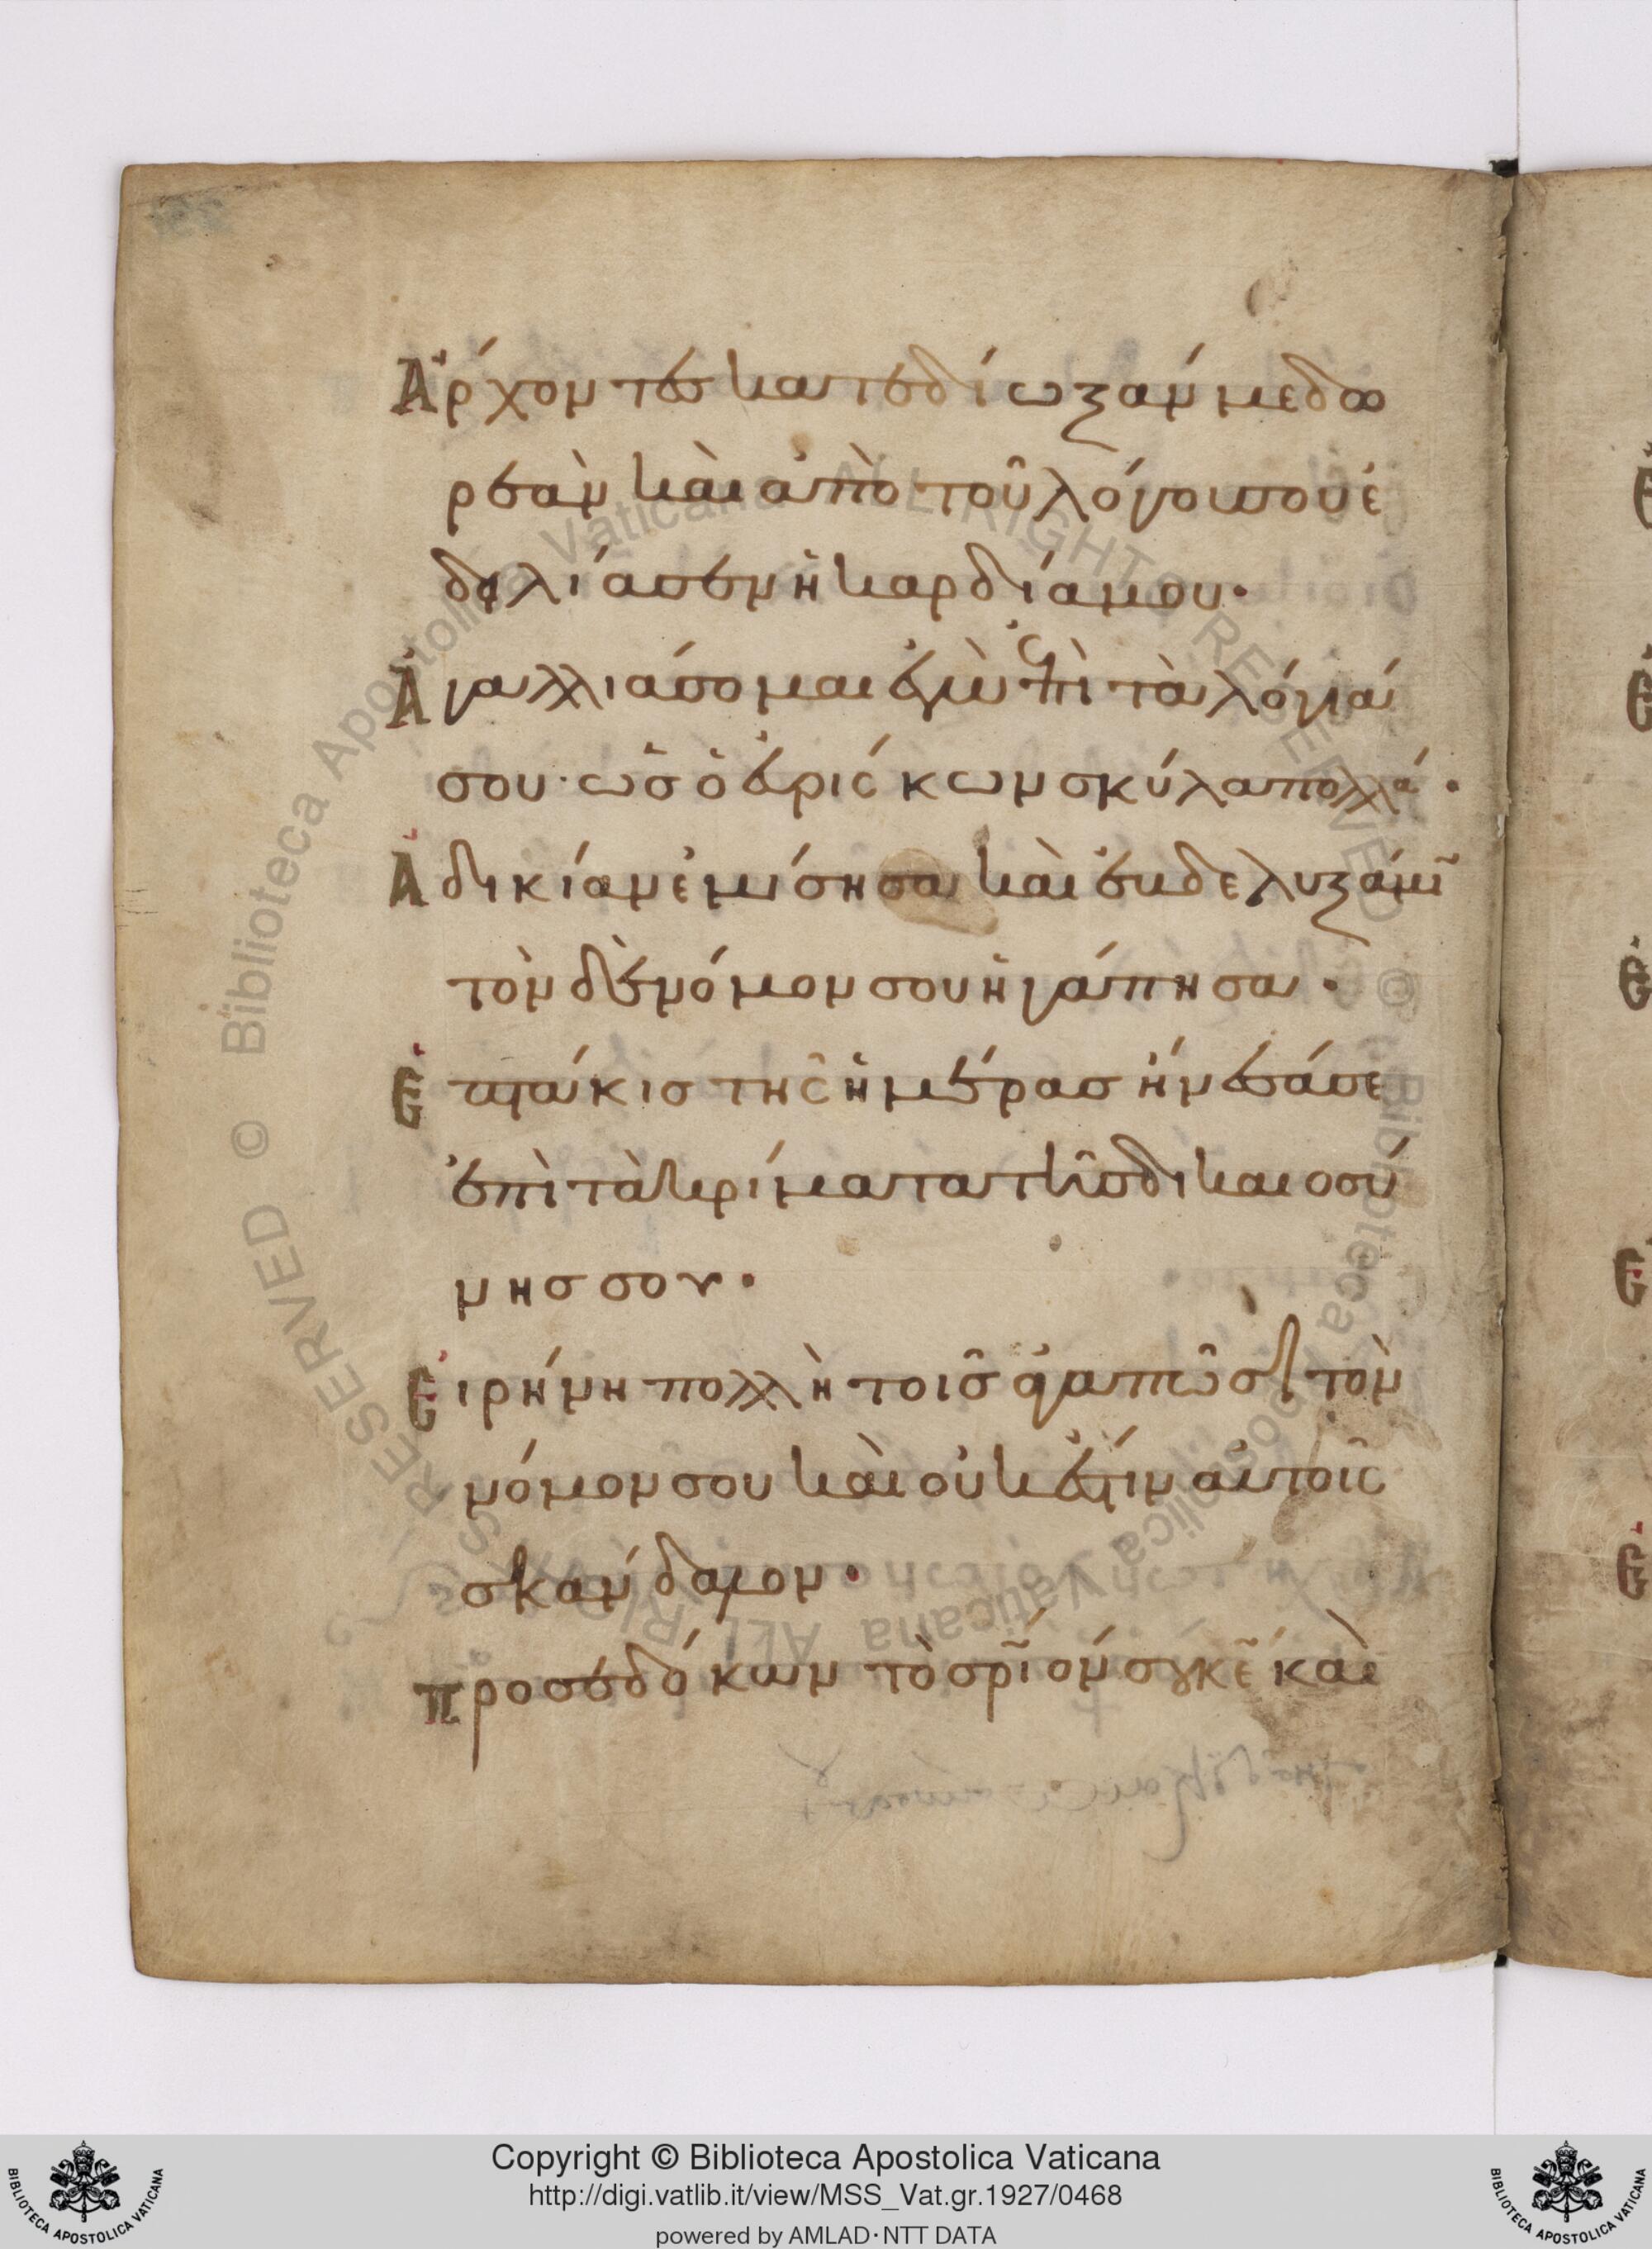 Ἄρχοντες κατεδίωξάν με δω
ρεὰν καὶ ἀπὸ τοῦ λόγου σου ἐ
δειλίασεν ἡ καρδία μου·
Ἀγαλλιάσομαι ἐγὼ ἐπὶ τὰ λόγιά
σου· ὡς ὁ εὑρίσκων σκύλα πολλά·
Ἀδικίαν ἐμίσησα καὶ ἐβδελυξάμην
τὸν δὲ νόμον σου ἠγάπησα·
Ἑπτάκις τῆς ἡμέρας ᾔνεσά σε
ἐπὶ τὰ κρίματα τῆς δικαιοσύ
νης σου·
Εἰρήνη πολλὴ τοῖς ἀγαπῶσι τὸν
νόμον σου καὶ οὐκ ἔστιν αὐτοῖς
σκάνδαλον·
προσεδόκων τὸ σρ̄ίόν σου κε̄ καὶ
Copyright © Biblioteca Apostolica Vaticana
http://digi.vatlib.it/view/MSS_Vat.gr.1927/0468
powered by AMLAD·NTT DATA
BIBLIOTECA APOSTOLICA VATICANA
BIBLIOTECA APOSTOLICA VATICANA
© Biblioteca Apostolica Vaticana ALL RIGHTS RESERVED
© Biblioteca Apostolica Vaticana ALL RIGHTS RESERVED